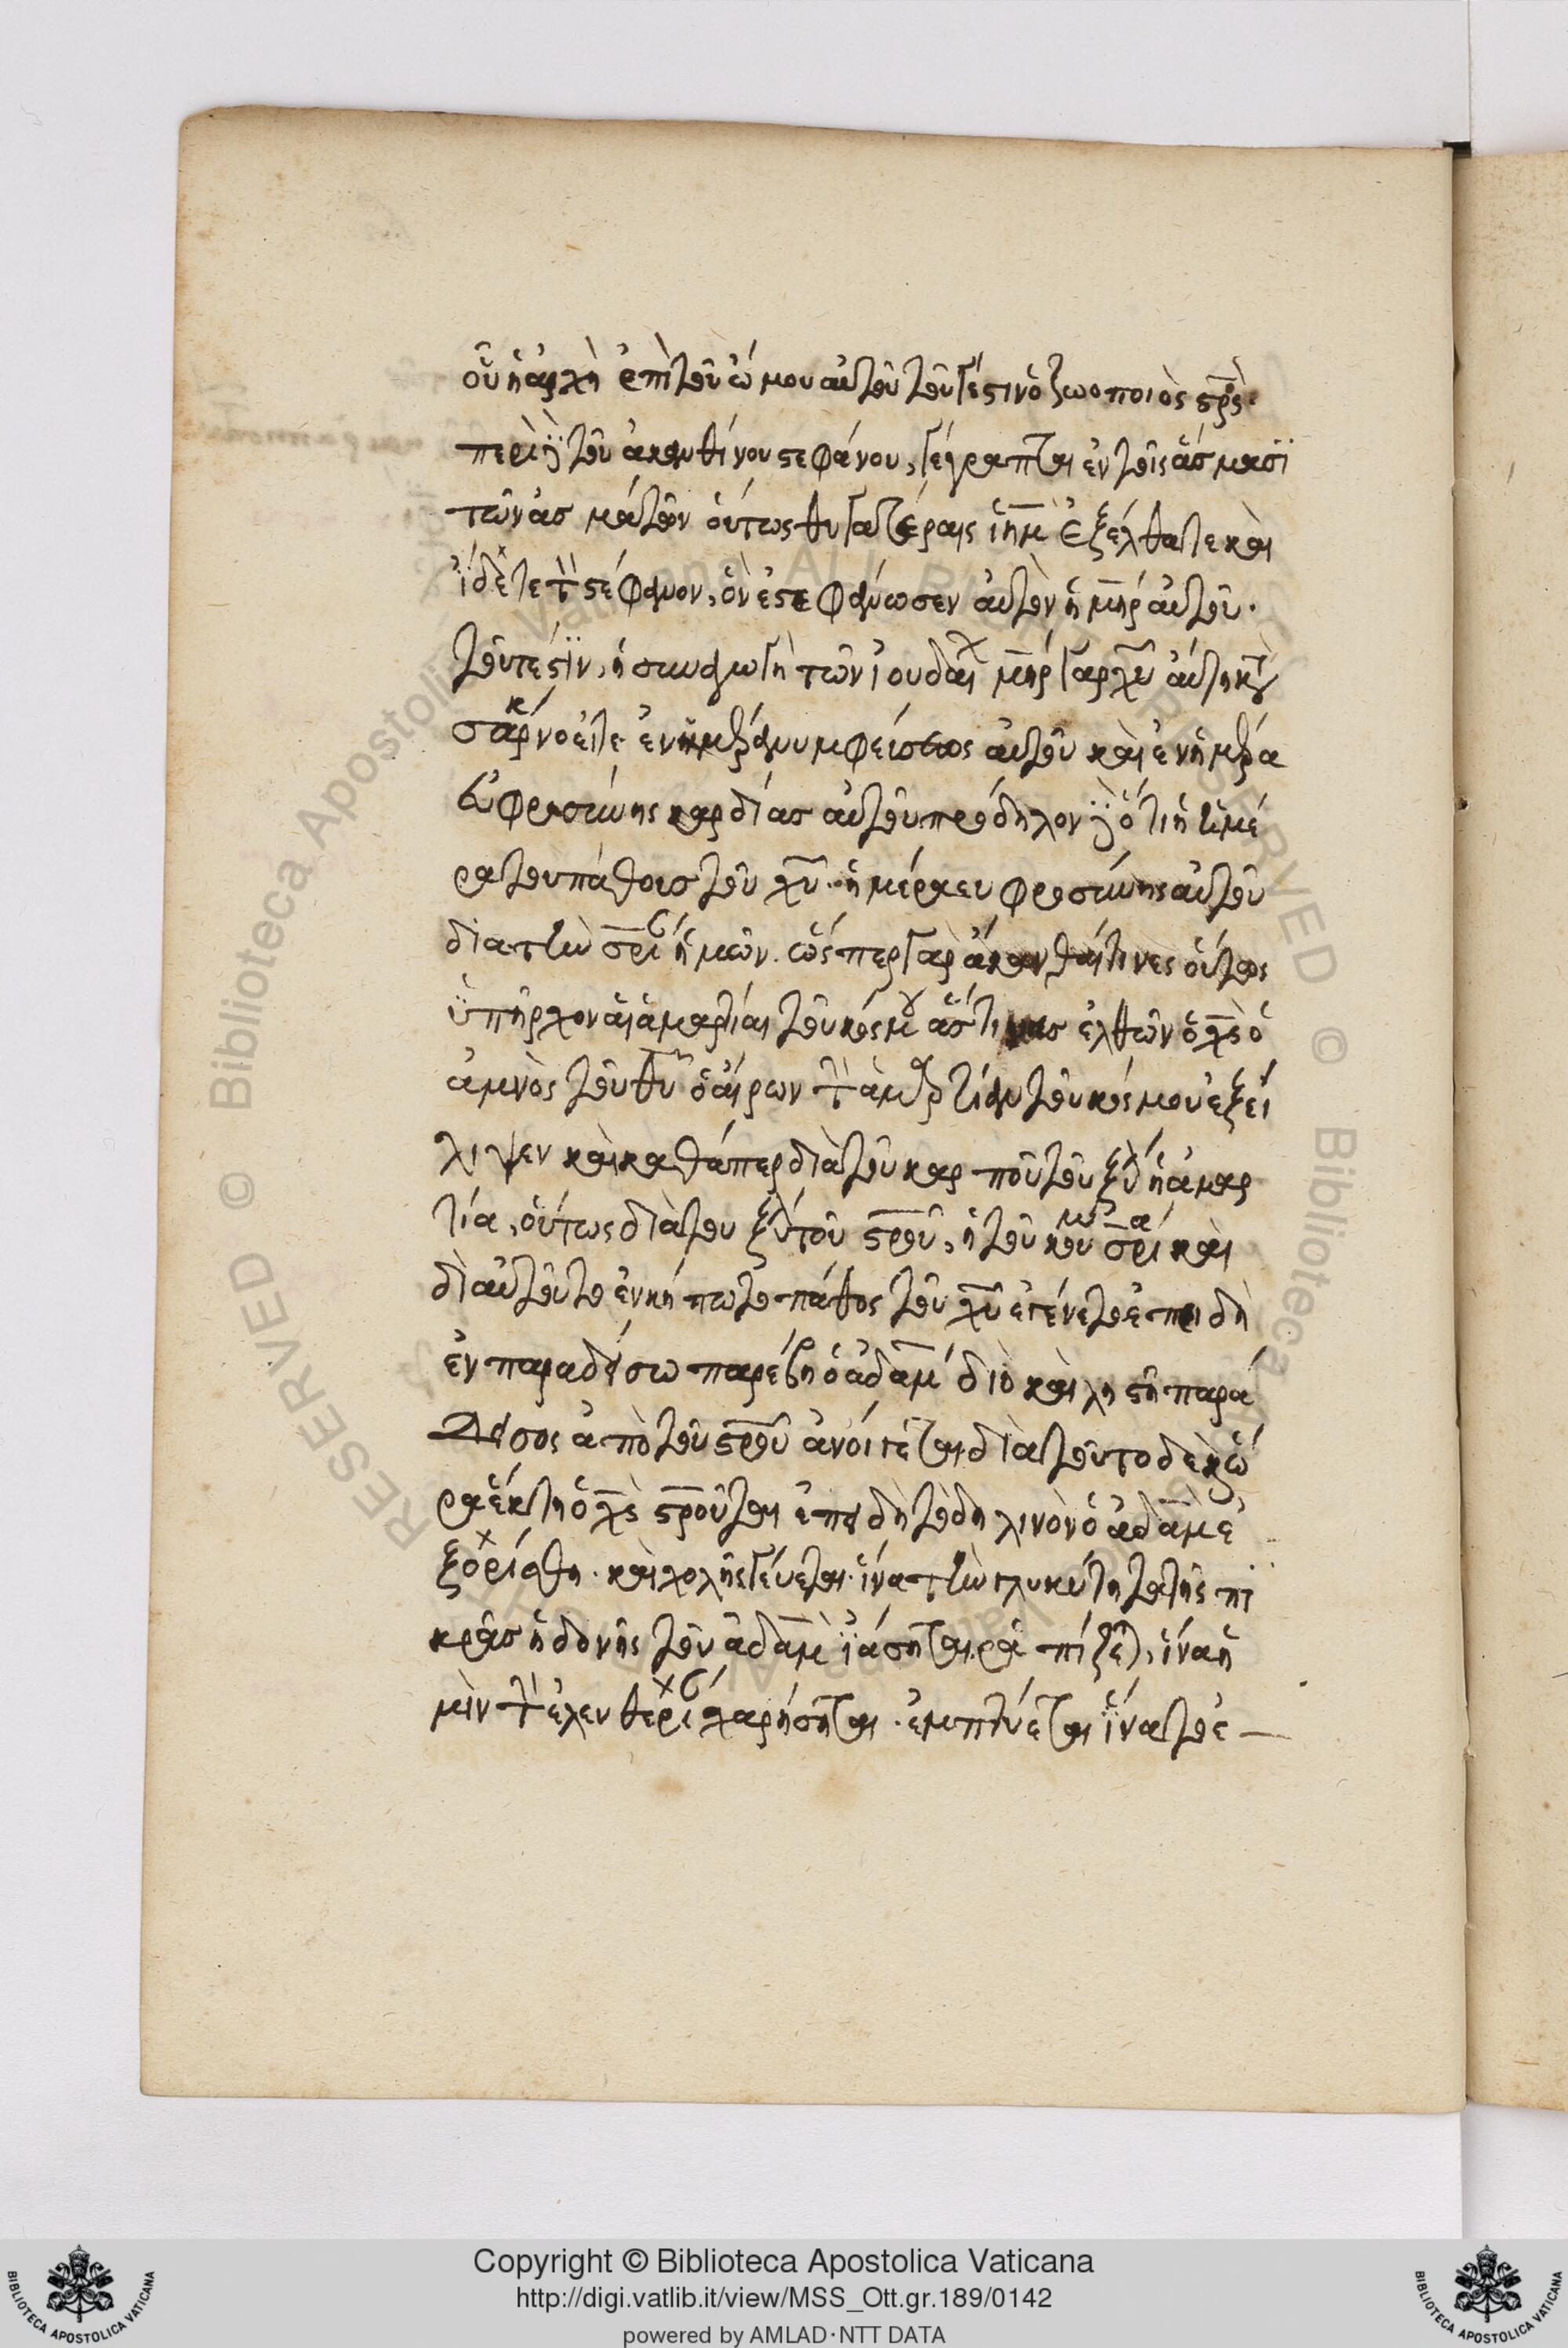 οὗ ἡ ἀρχὴ ἐπὶ τοῦ ὤμου αὐτοῦ τουτέστιν ὁ ζωοποιὸς σρ̅ς·
περὶ δὲ τοῦ ἀκανθίνου στεφάνου, γέγραπται ἐν τοῖς ἄσμασϊ
τῶν ἀσμάτων οὕτως θυγατέραις ἰη̅μ̅ ἐξέλθατε καὶ
ἴδετε τὸν στέφανον, ὃν ἐστεφάνωσεν αὐτὸν ἡ μη̅ρ αὐτοῦ·
τουτέστϊν, ἡ συναγωγὴ τῶν ἰουδαί μη̅ρ γὰρ χυ̅ αὕτη κατὰ
σάρκ νοεῖτε ἐν ἡμέρα νυμφεύσεως αὐτοῦ καὶ ἐν ἡμέρα
εὐφροσύνης καρδίας αὐτοῦ πρόδηλον δὲ ὅτι ἡ ἡμέ
ρα του πάθους τοῦ χυ̅· ἡμέρα εὐφροσύνης αὐτοῦ
δια τὴν σρι̅ ἡμῶν. ὥσπερ γὰρ ἄκανθαί τινες οὕτως
ὑπῆρχον αἱ ἁμαρτίαι τοῦ κόσμου ἅστινας ἐλθὼν ὁ χς̅ ὁ
ἀμνὸς τοῦ θυ̅ ὁ αἴρων τὴν ἁμαρτίαν τοῦ κόσμου ἐξεί
λιψεν καὶ καθάπερ διὰ τοῦ καρποῦ τοῦ ξύ ἡ ἁμαρ
τία, οὕτως διὰ του ξύ τοῦ σρ̅οῦ, ἡ τοῦ κόσμου σρία καὶ
δὶ αὐτοῦ το ἐν κήπω το πάθος τοῦ χυ̅ ἐγένετο ἐπειδὴ
ἐν παραδείσω παρέβη ὁ ἀδάμ διὸ καὶ λῃστῆ παρά
δεισος ἀπὸ τοῦ σρ̅οῦ ἀνοίγεται διὰ τοῦτο δὲ καὶ ὥ
ρα ἕκτη ὁ χς̅ σρ̅οῦται ἐπειδὴ τὸ δηλινὸν ὁ ἀδὰμ ἐ
ξορίσθη. καὶ χολῆς γεύεται· ἵνα τὴν γλυκύτητα τῆς πι
κρᾶς ἡδονῆς τοῦ ἀδὰμ ἰάσηται. ραπίζετ, ἵνα ἡ
μῖν τὴν ἐλευθερί χαρήσηται. ἐμπτύεται ἵνα το ἐ